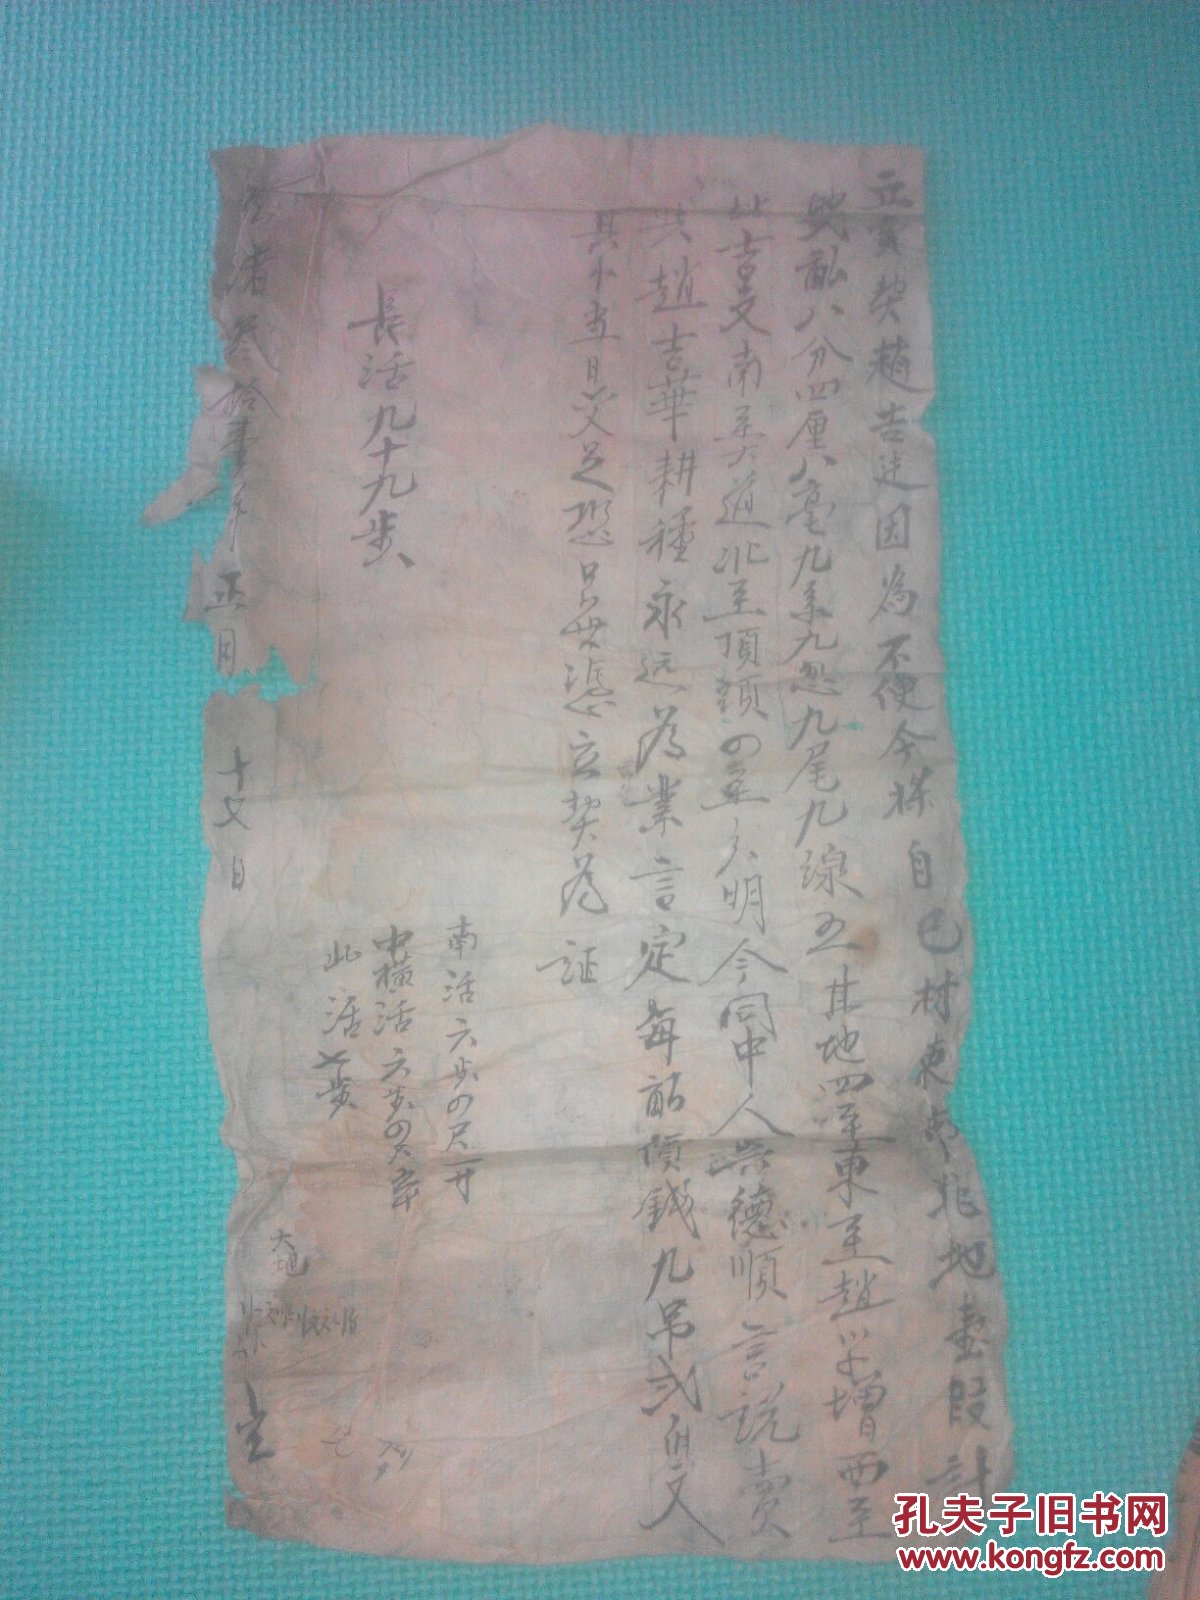 立賣契趙吉廷因為不便今將自己村東南北地壹段計
地畝八分四厘八毫九系九忽九尾九線五其地四至東至趙學增西至
吉文南至大道北至頂頭四至分明今同中人洪德順言說賣
與趙吉華耕種永远為業言定每畝價錢九吊弍百文
其錢當日交足恐口無憑立契為証
長活九十九步
南活六步四尺一寸
中橫活六步四尺
北活七步
大地
光緒叁拾壹年正月十七日 立
孔夫子旧书网
www.kongfz.com